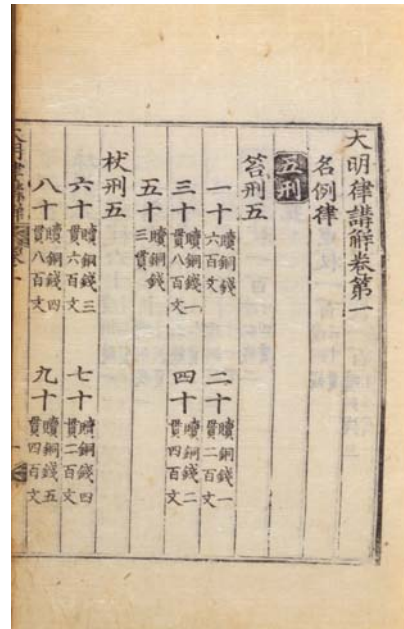 大明律講解卷第一
名例律
五刑
笞刑五
一十贖銅錢六百文 二十贖銅錢一貫二百文
三十贖銅錢一貫八百文 四十贖銅錢二貫四百文
五十贖銅錢三貫
杖刑五
六十贖銅錢三貫六百文 七十贖銅錢四貫二百文
八十贖銅錢四貫八百文 九十贖銅錢五貫四百文
大明律講解卷一